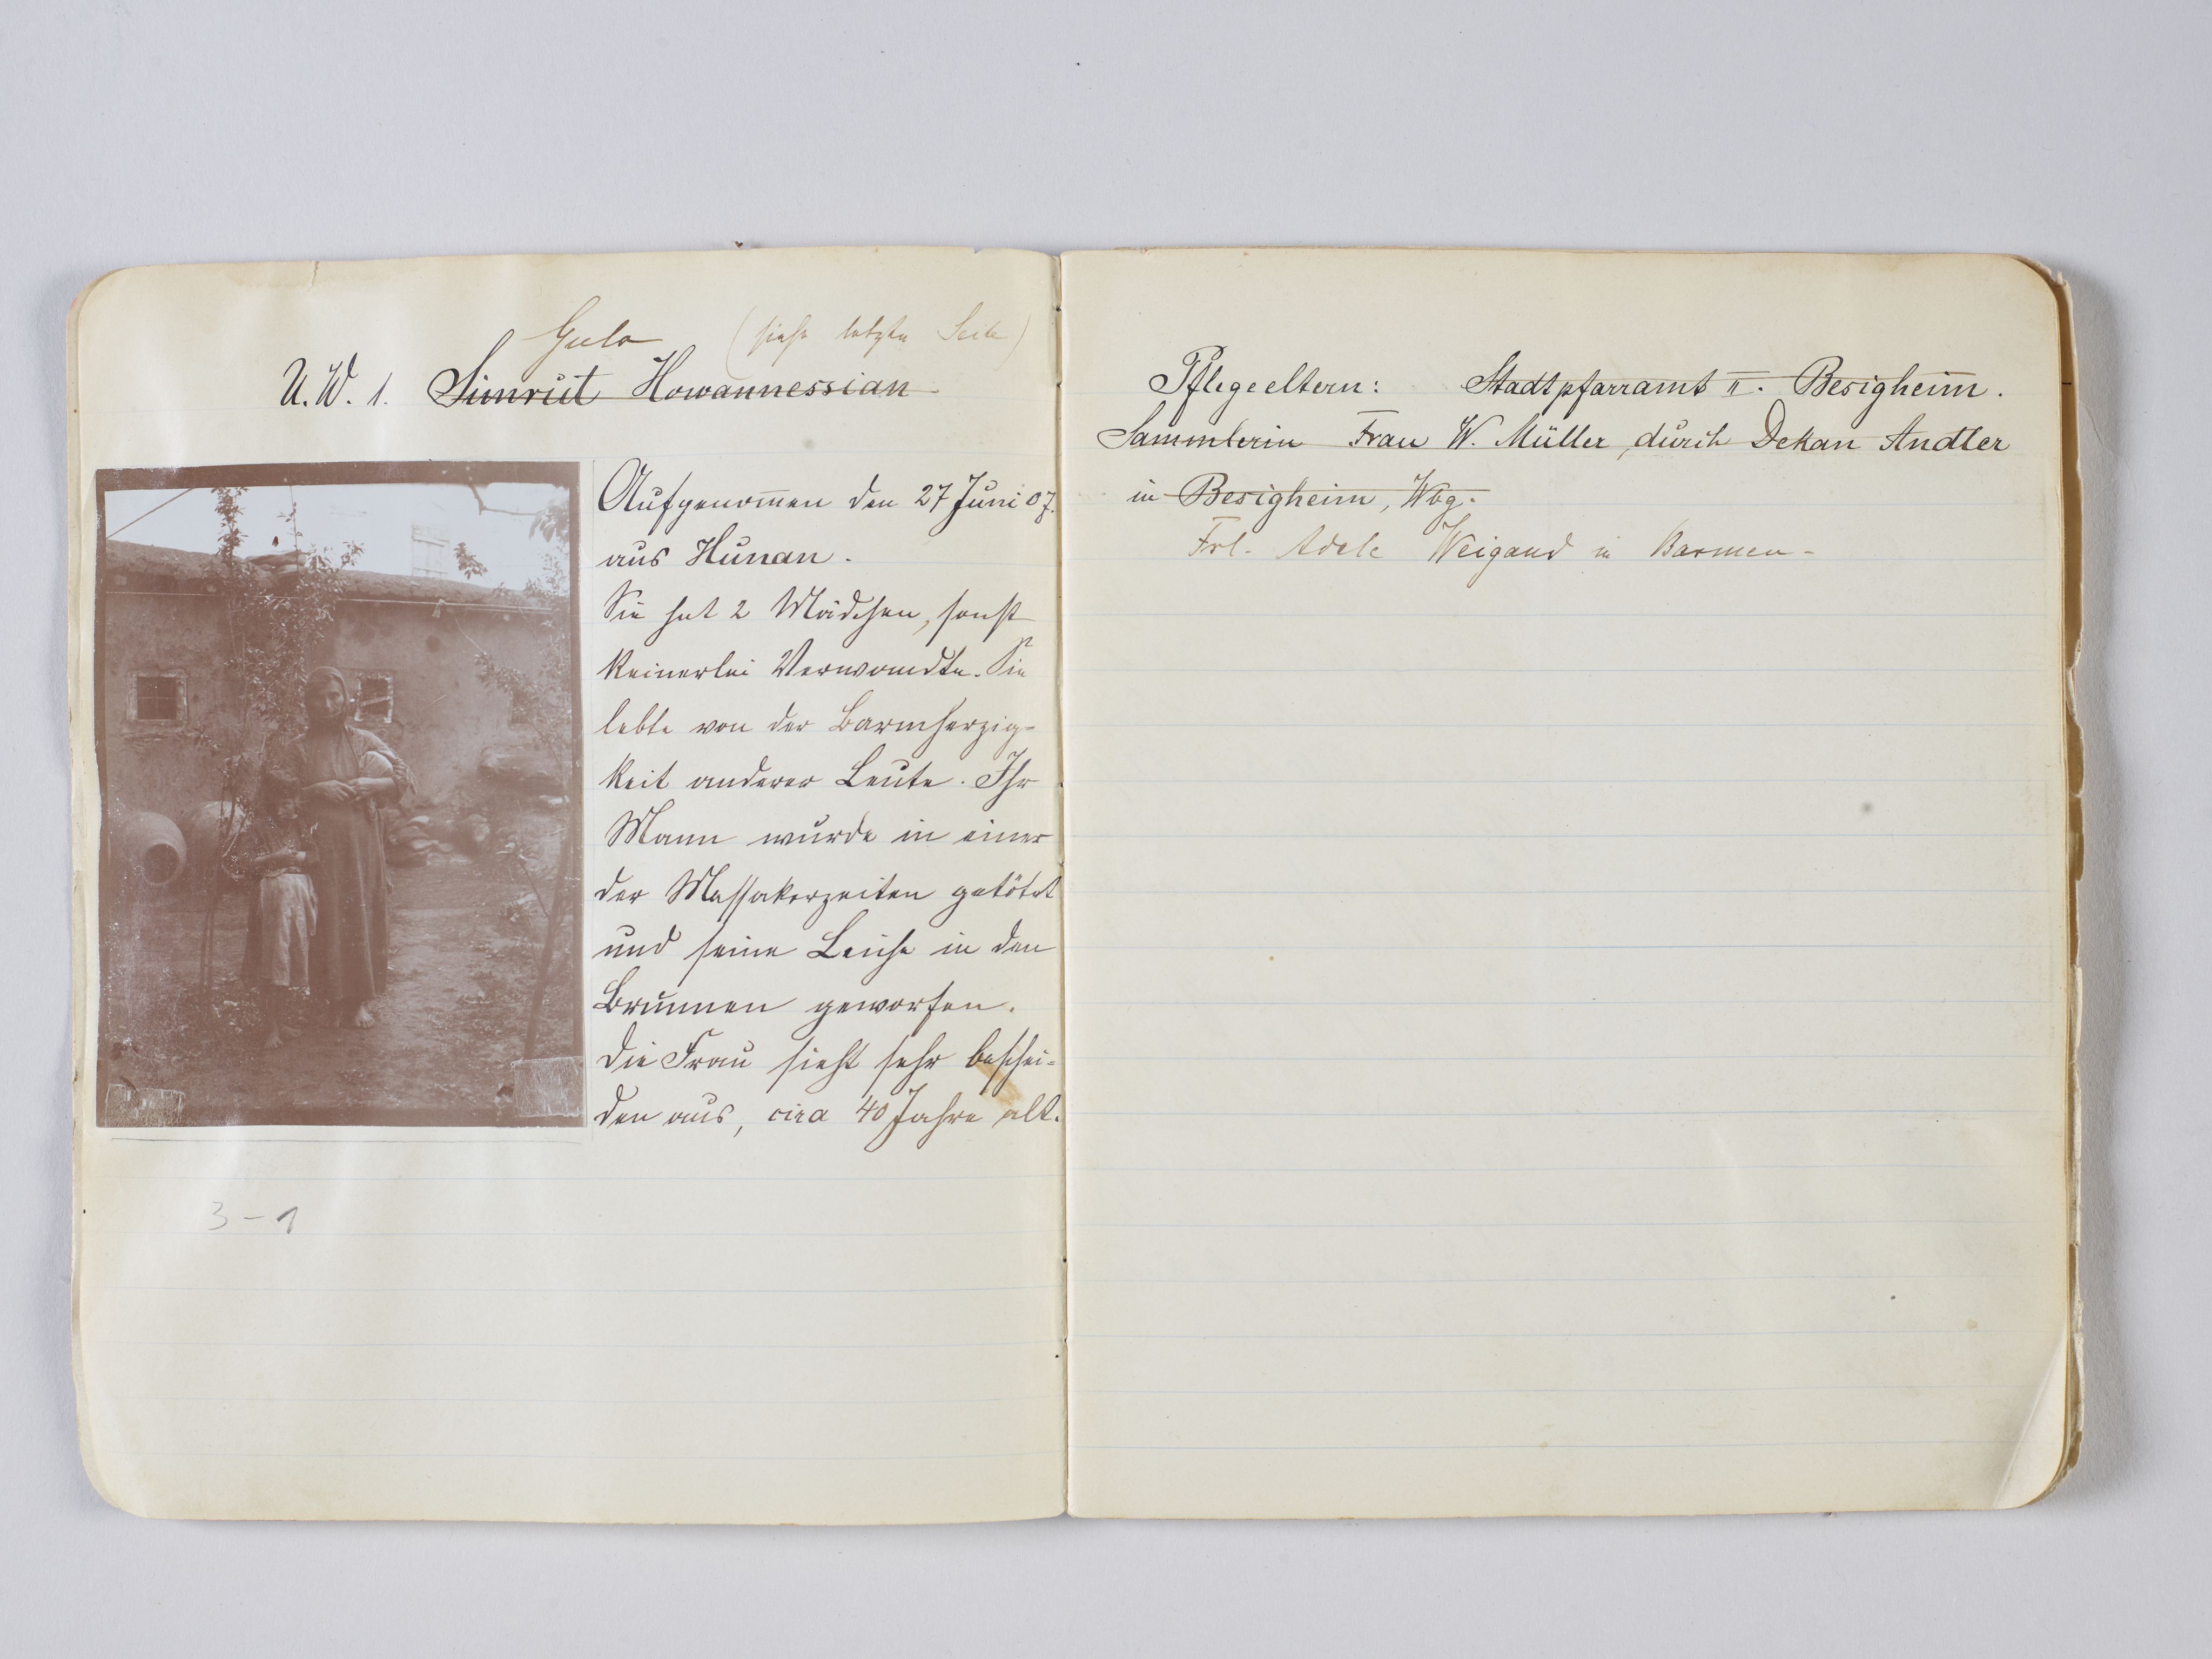 Gula (siehe letzte Seite)
U. W. 1. Simrüt Howannessian
Aufgenom̅en den 27 Juni 07.
aus Hunan.
Sie hat 2 Mädchen, sonst
keinerlei Verwandte. Sie
lebte von der Barmherzig-
keit anderer Leute. Ihr
Mann wurde in einer
der Massakerzeiten getötet
und seine Leiche in den
Brunnen geworfen.
Die Frau sieht sehr beschei-
den aus, cira 40 Jahre alt.
3-1
Pflegeeltern: Stadtpfarramt II. Besigheim.
Sammlerin Frau W. Müller, durch Dekan Andler
in Besigheim, Wbg.
Frl. Adele Weigand in Barmen-